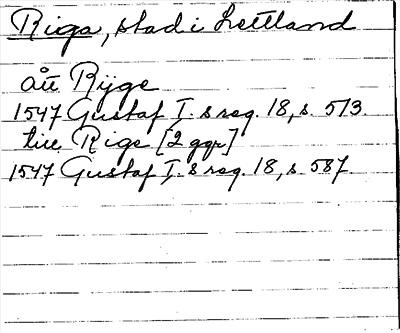 Riga, stad i Lettland
ått Rijge
1547 Gustaf I:s reg. 18, s. 513.
till Rige [2 ggr]
1547 Gustaf I:s reg. 18, s. 587.